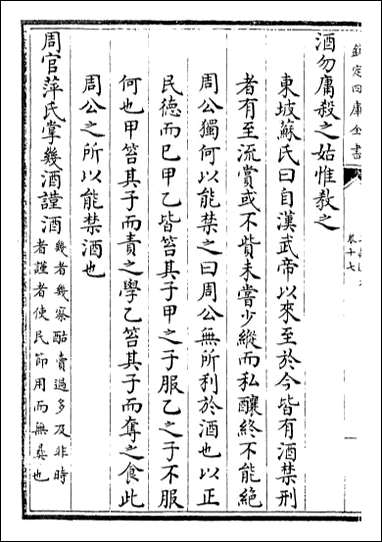 欽定四庫全書
卷十七
酒勿庸殺之姑惟教之
東坡蘇氏曰自漢武帝以來至於今皆有酒禁刑
者有至流賞或不貲未嘗少縱而私釀終不能絕
周公獨何以能禁之曰周公無所利於酒也以正
民德而已甲乙皆笞其子甲之子服乙之子不服
何也甲笞其子而責之學乙笞其子而奪之食此
周公之所以能禁酒也
周官萍氏掌幾酒謹酒
幾者幾察酤賣過多及非時
者謹者使民節用而無彞也